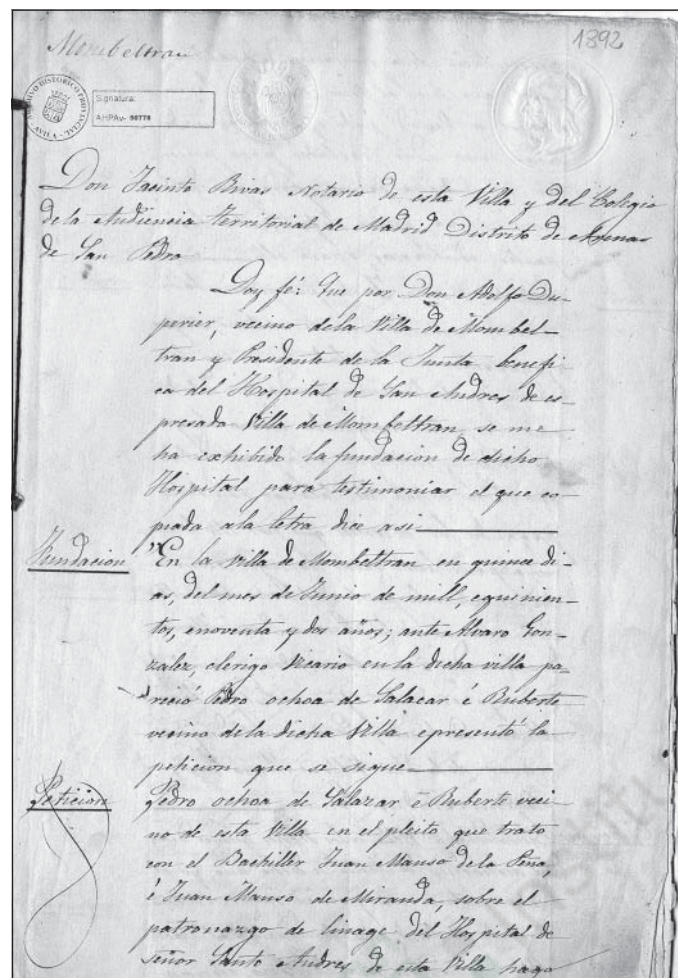 Mombeltran
1892
ARCHIVO HISTORICO PROVINCIAL - AVILA
Signatura:
AHPAv- 90778
Don Jacinto Rivas Notario de esta Villa y del Colegio
de la Audiencia Territorial de Madrid Distrito de Arenas
de San Pedro
Doy fé: Que por Don Adolfo Du-
perier, vecino dela Villa de Mombel-
tran y Presidente de la Junta benefi
ca del Hospital de San Andres de es-
presada Villa de Mombeltran, se me
ha exhibido la fundacion de dicho
Hospital para testimoniar el que co-
piada ala letra dice asi
Fundacion
"En la villa de Mombeltran en quince di-
as, del mes de Junio de mill, equinien-
tos, enoventa y dos años; ante Alvaro Gon-
zalez, clerigo Vicario en la dicha villa pa-
reció Pedro ochoa de Salacar é Ruberte
vecino dela dicha Villa epresentó la
peticion que se sigue
Peticion
Pedro ochoa de Salazar é Ruberte veci
no de esta Villa en el pleito que trato
con el Bachiller Juan Manso dela Peña,
é Juan Manso de Miranda, sobre el
patronazgo de linage del Hospital de
señor Santo Andres de esta Villa hago